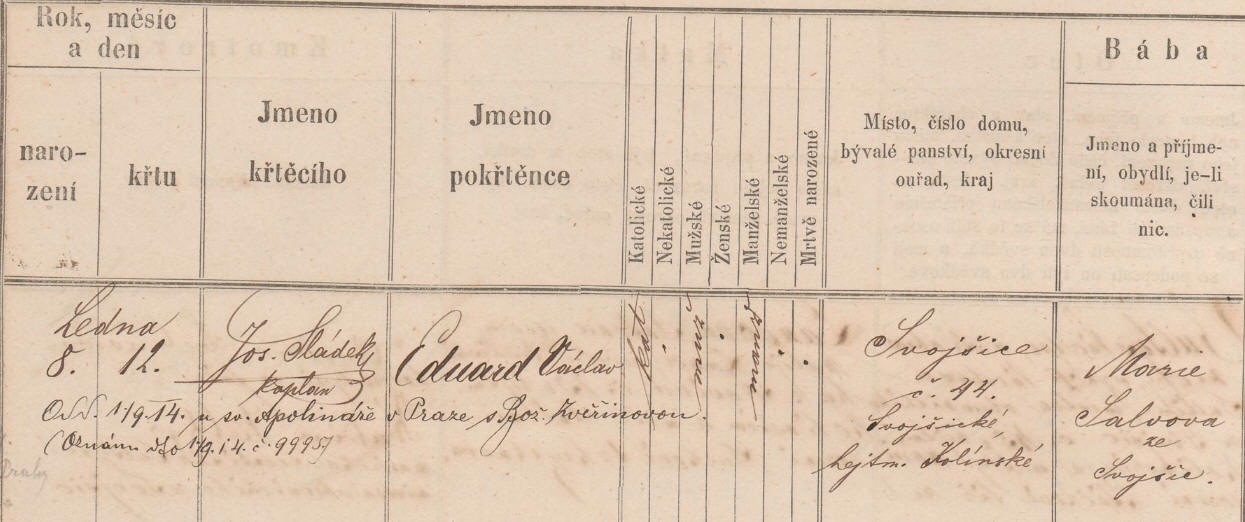 Rok, měsíc
a den
naro-
zení
křtu
Jmeno
křtěcího
Jmeno
pokřtěnce
Katolické
Nekatolické
Mužské
Ženské
Manželské
Nemanželské
Mrtvě narozené
Místo, číslo domu,
bývalé panství, okresní
ouřad, kraj
Bába
Jmeno a příjme-
ní, obydlí, je-li
skoumána, čili
nic.
Ledna
8. 12.
Jos. Sládek
kaplan
Eduard Václav
kat
muž
manž
Svojšice
č. 44.
Svojšické
hejtm. Kolínské
Marie
Salvova
ze
Svojšic.
1/9.14. u sv. Apolináře v Praze s Bož. Zvěřinovou.
1/9.14. č. 9995)